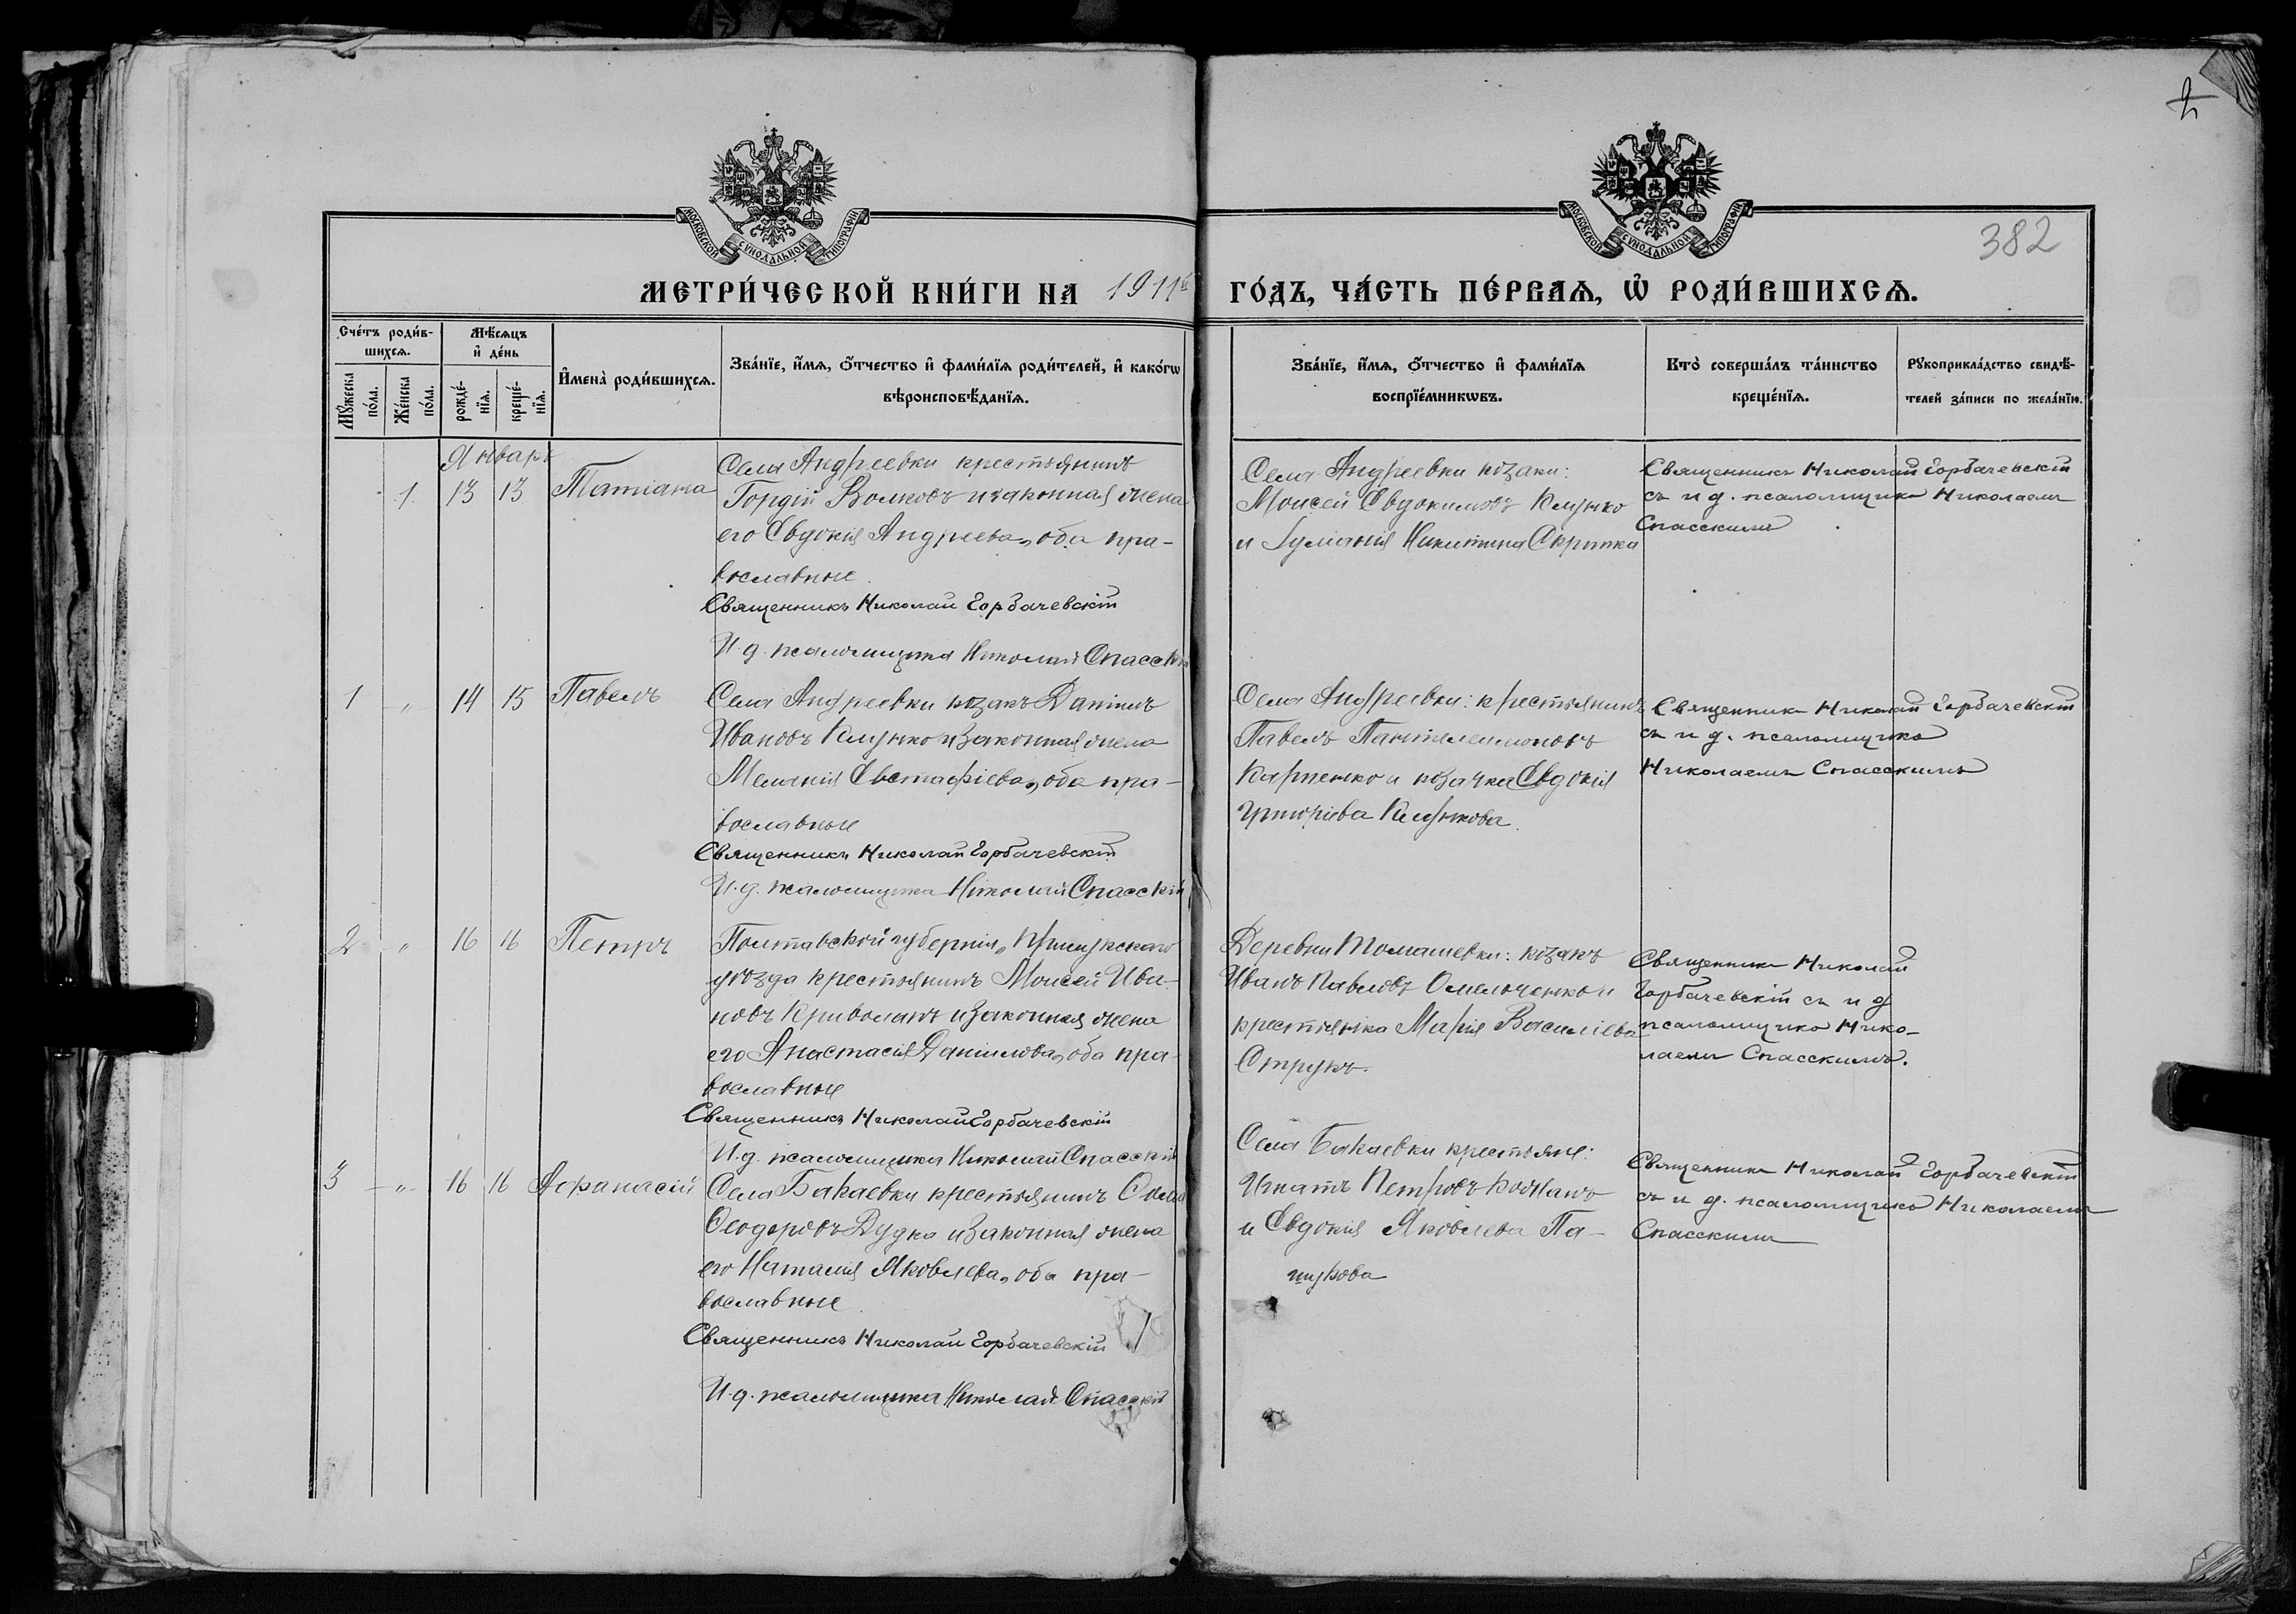 2
382
МОСКОВСКОЙ СѴНОДАЛЬНОЙ ТИПОГРАФІИ
МОСКОВСКОЙ СѴНОДАЛЬНОЙ ТИПОГРАФІИ
МЕТРИ́ЧЕСКОЙ КНИ́ГИ НА 1911й ГО́ДЪ, ЧА́СТЬ ПЕ́РВАѦ, Ѡ҆ РОДИ́ВШИХСѦ.
Сче́тъ роди́в-
шихсѧ.
Мꙋ́жеска
по́ла.
Же́нска
по́ла.
Мѣ́сѧцъ
и҆ де́нь
рожде́-
нїѧ.
креще́-
нїѧ.
И҆мена̀ роди́вшихсѧ.
Зва́нїе, и҆́мѧ, ѻ҆́тчество и҆ фами́лїѧ роди́телей, и҆ како́гѡ
вѣроисповѣ́данїѧ.
Зва́нїе, и҆́мѧ, ѻ҆́тчество и҆ фами́лїѧ
воспрїе́мникѡвъ.
Кто̀ соверша́лъ та́инство
креще́нїѧ.
Рꙋкоприкла́дство свидѣ́-
телей за́писи по жела́нїю.
Январь
1. 13 13 Татіана
Села Андреевки крестьянинъ
Гордій Волковъ и законная жена
его Евдокія Андреева, оба пра-
вославные.
Священникъ Николай Горбачевскій
И.д. псаломщика Николай Спасскій
Села Андреевки козаки:
Моисей Евдокимовъ Клунко
и Никитина Скрипка
Священникъ Николай Горбачевскій
съ и д. псаломщика Николаемъ
Спасскимъ
1 " 14 15 Павелъ
Села Андреевки козакъ Даніилъ
Ивановъ Клунко и законная жена
Меланія Евстафіева, оба пра-
вославные
Священникъ Николай Горбачевскій
И.д. псаломщика Николай Спасскій
Села Андреевки: крестьянинъ
Павелъ Пантелеимоновъ
Карпенко и козачка Евдокія
Григоріева Клункова.
Священникъ Николай Горбачевскій
съ и д. псаломщика
Николаемъ Спасскимъ
2 " 16 16 Петръ
Полтавской губерніи, Прилукскаго
уѣзда крестьянинъ Моисей Ива-
новъ и законная жена
его Анастасія Даніилова, оба пра-
вославные
Священникъ Николай Горбачевскій
И.д. псаломщика Николай Спасскій
Деревни Томашевки: козакъ
Иванъ Павловъ Омельченко и
крестьянка Марія Василіева
Струкъ.
Священникъ Николай
Горбачевскій съ и д
псаломщика Нико-
лаемъ Спасскимъ.
3 " 16 16 Аѳанасій
Села Бакаевки крестьянинъ
Ѳеодоровъ Дудка и законная жена
его Наталія Яковлева, оба пра-
вославные.
Священникъ Николай Горбачевскій
И.д. псаломщика Николай Спасскій
Села Бакаевки крестьяне:
Игнатъ Петровъ
и Евдокія Яковлева Па-
шукова
Священникъ Николай Горбачевскій
съ и д. псаломщика Николаемъ
Спасскимъ